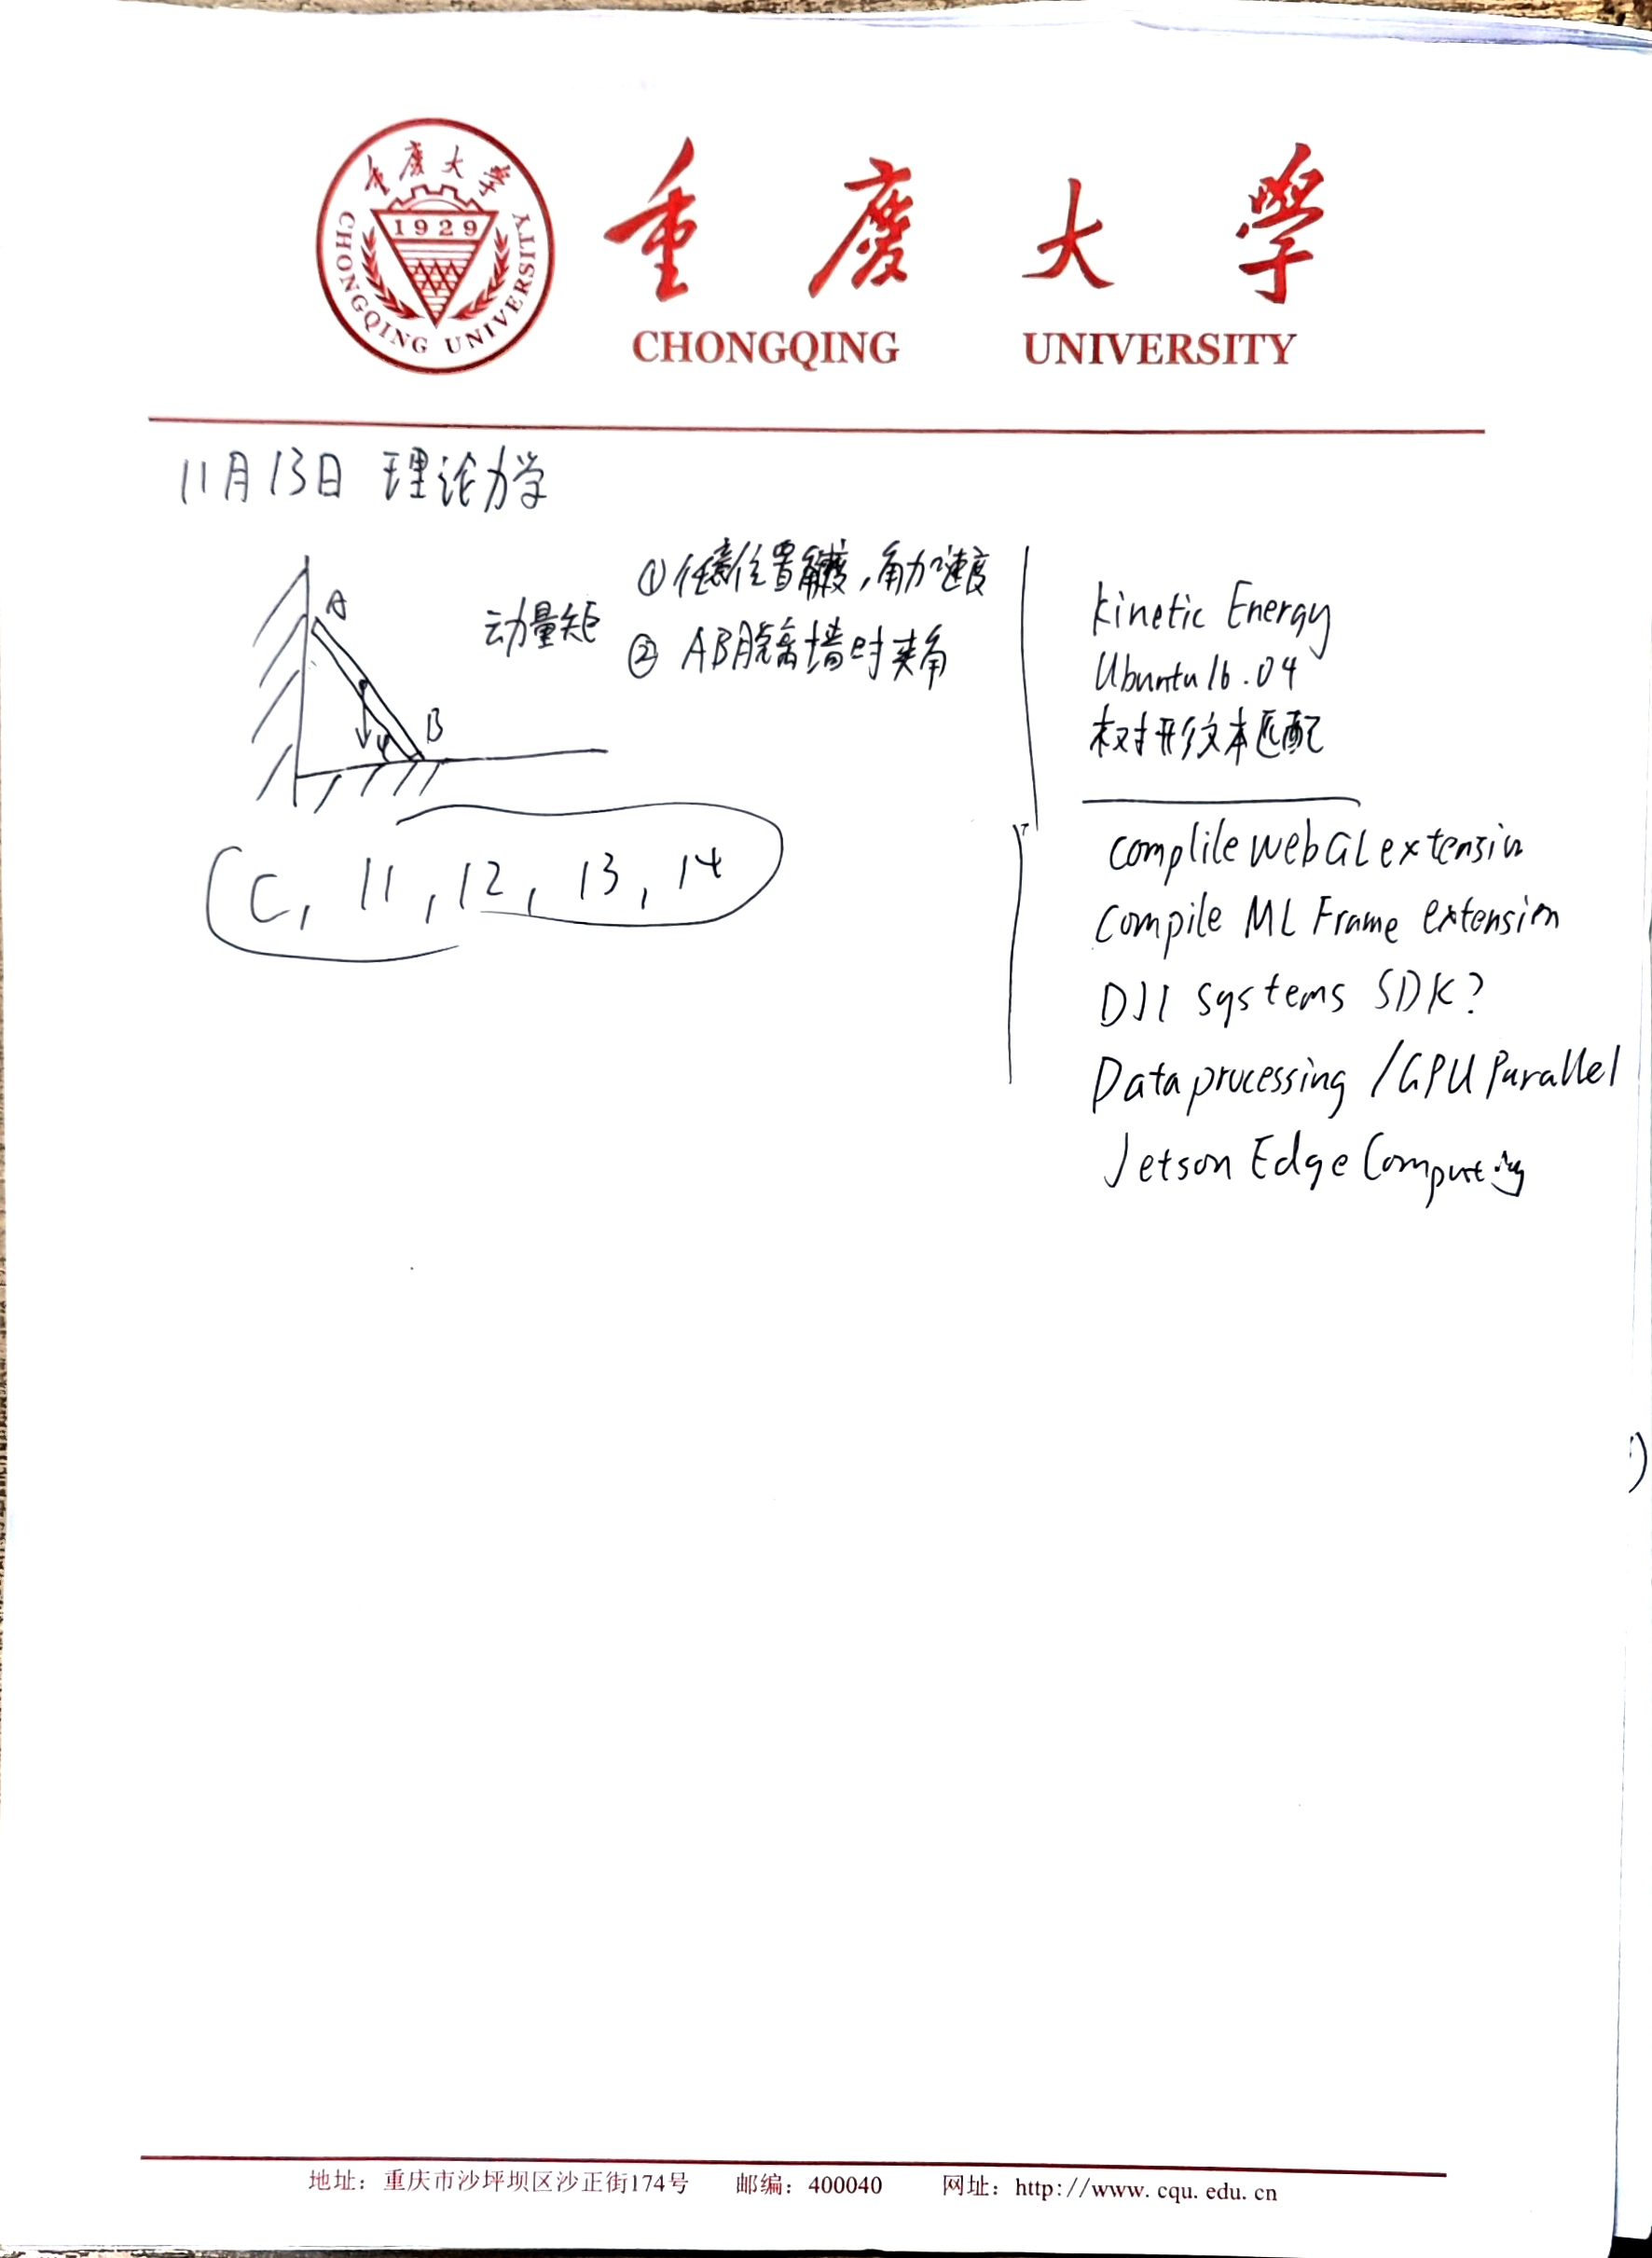 重庆大学
1929
CHONGQING UNIVERSITY
重慶大學
CHONGQING UNIVERSITY
11月13日 理论力学
A
B
φ
动量矩
①任意位置角度,角加速度
② AB脱离墙时夹角
C, 11, 12, 13, 14
kinetic Energy
Ubuntu 16.04
树形文本匹配
Complile webGL extension
Compile ML Frame extension
DJI systems SDK?
Data processing / GPU Parallel
Jetson Edge Computing
地址：重庆市沙坪坝区沙正街174号 邮编：400040 网址：http://www.cqu.edu.cn